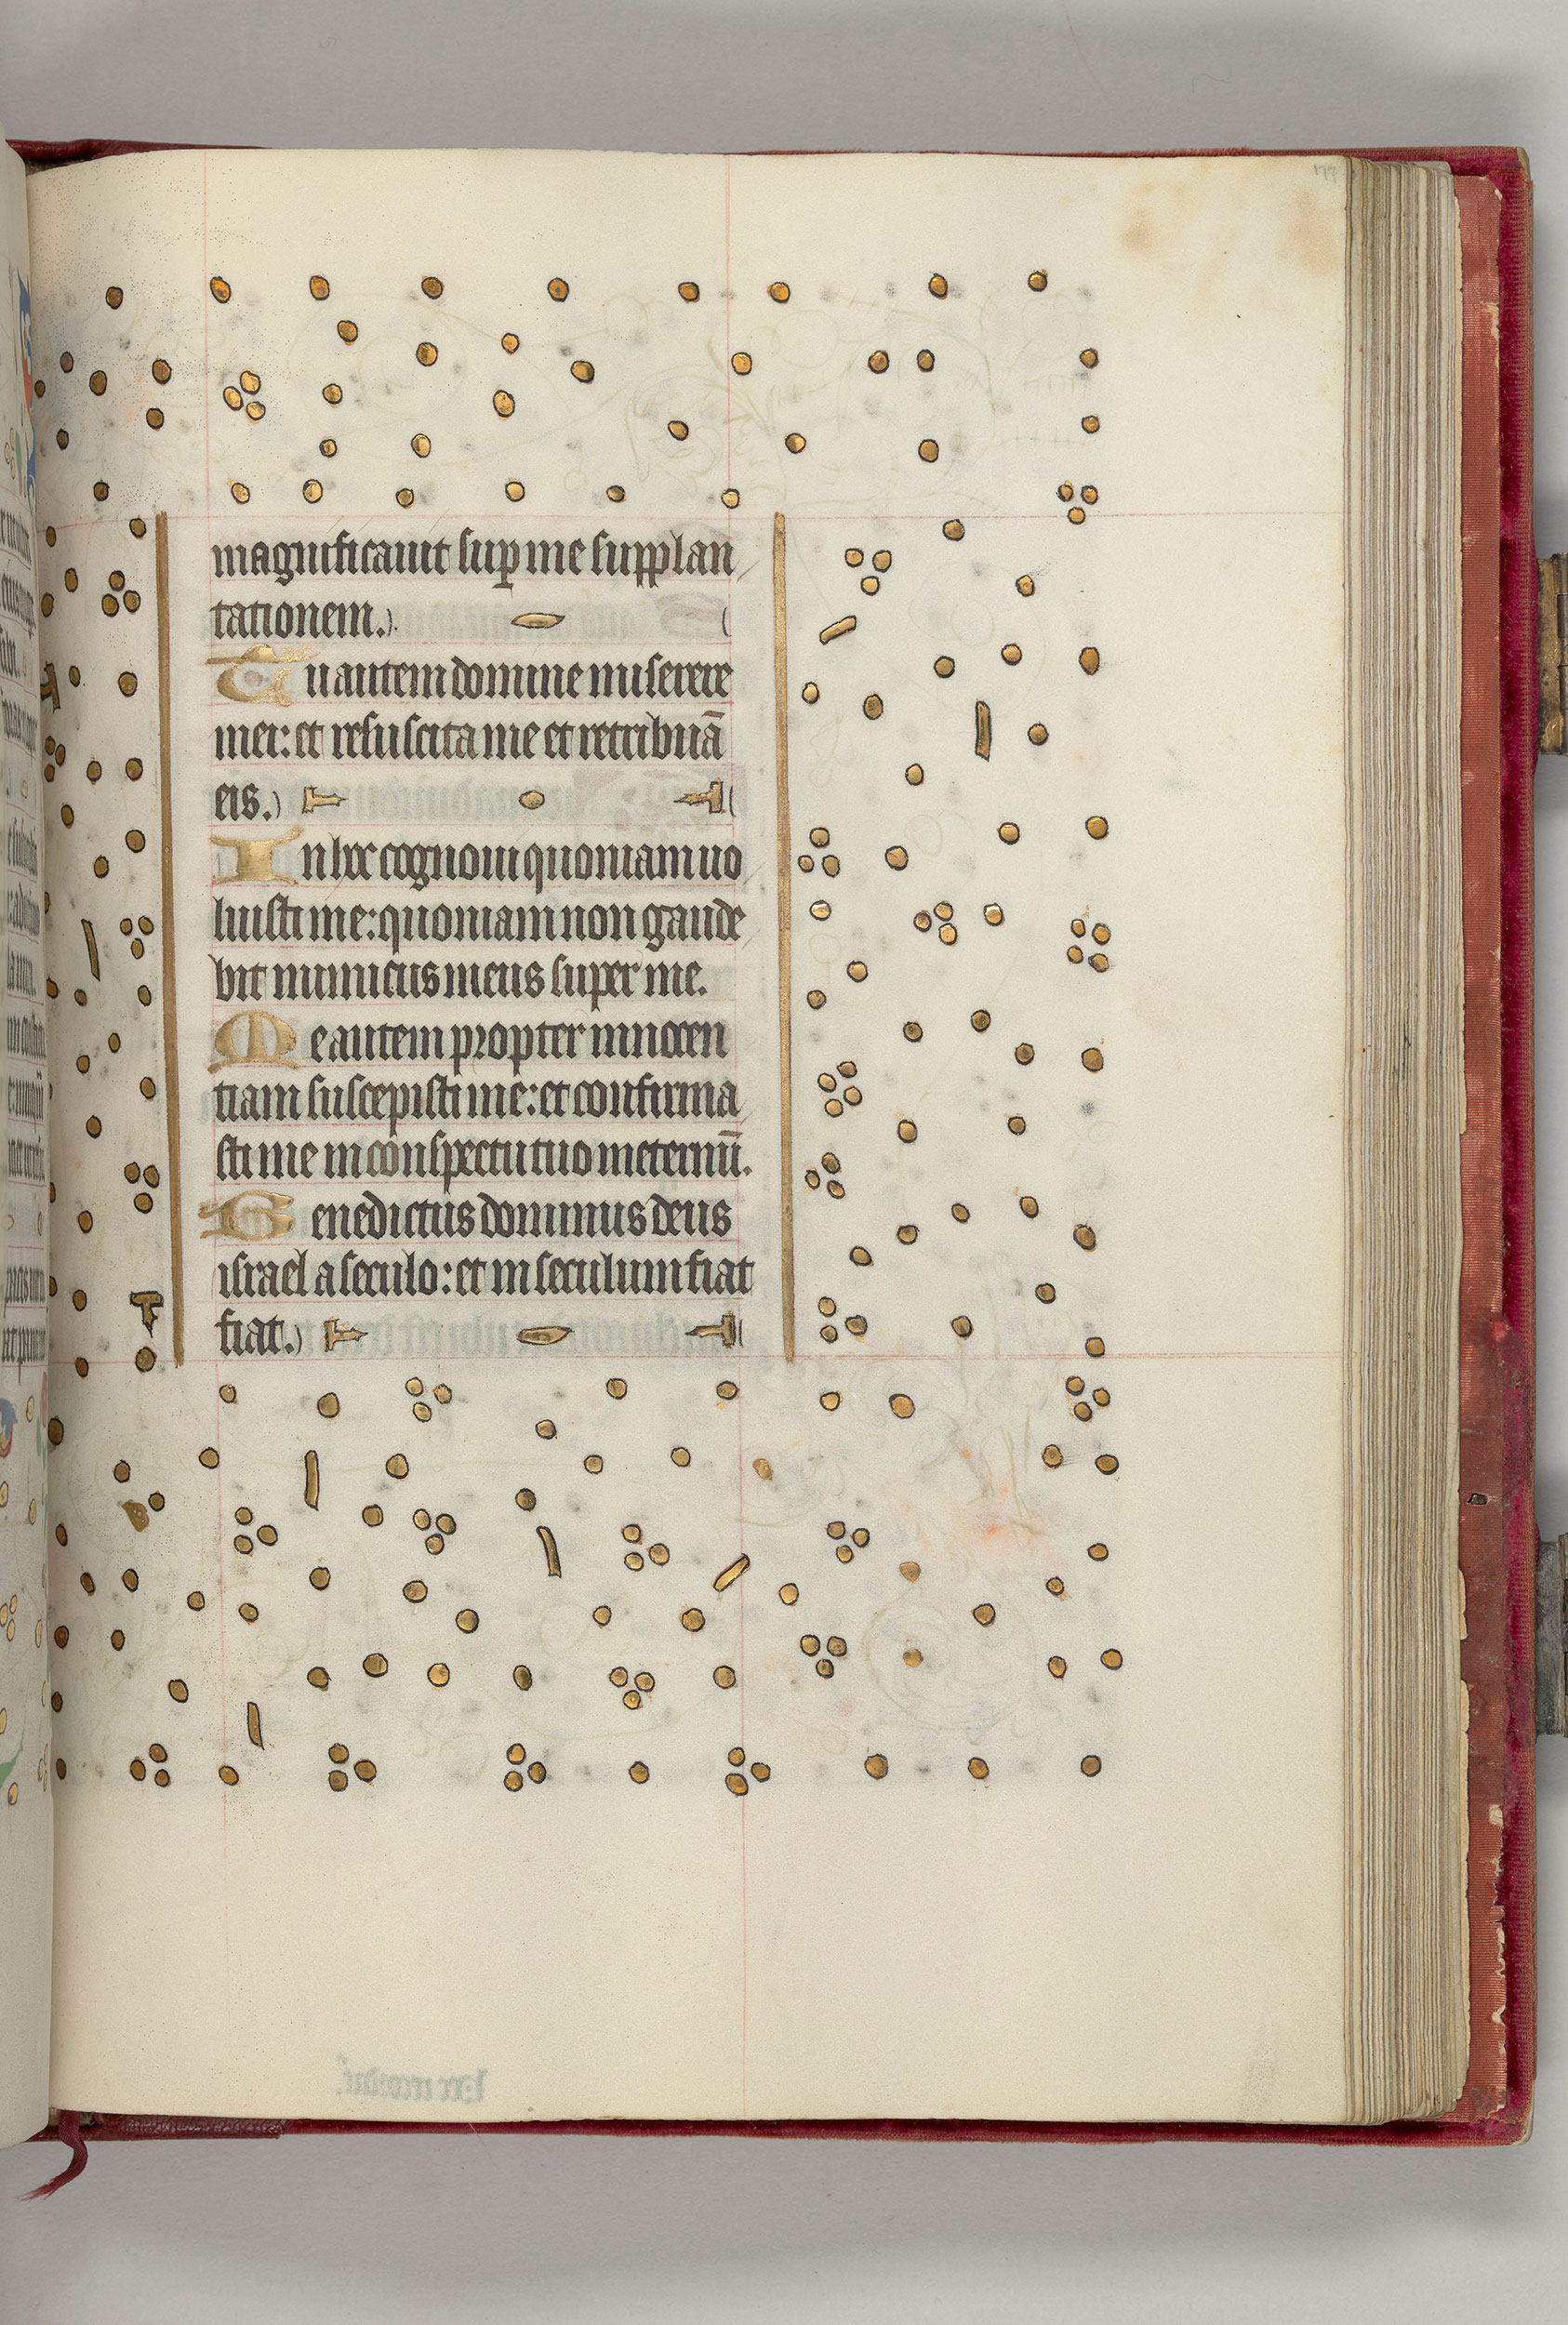 177
magnificauit sup me supplan
tationem.
Tu autem domine miserere
mei: et resuscita me et retribuā
eis.
In hoc cognoui quoniam uo
luisti me: quoniam non gaude
bit inimicus meus super me.
Me autem propter innocen
tiam suscepisti me: et confirma
sti me in conspectu tuo in eternū.
Benedictus dominus deus
israel a seculo: et in seculum fiat
fiat.